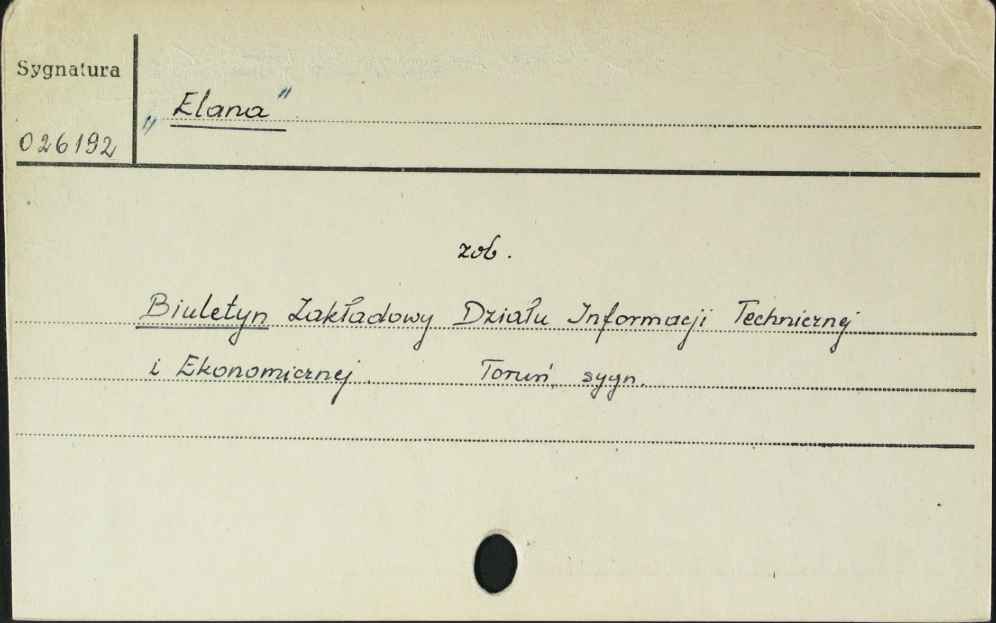 Sygnatura
„Elana"
026192
zob.
Biuletyn Zakładowy Działu Informacji Technicznej
i Ekonomicznej. Toruń, sygn.